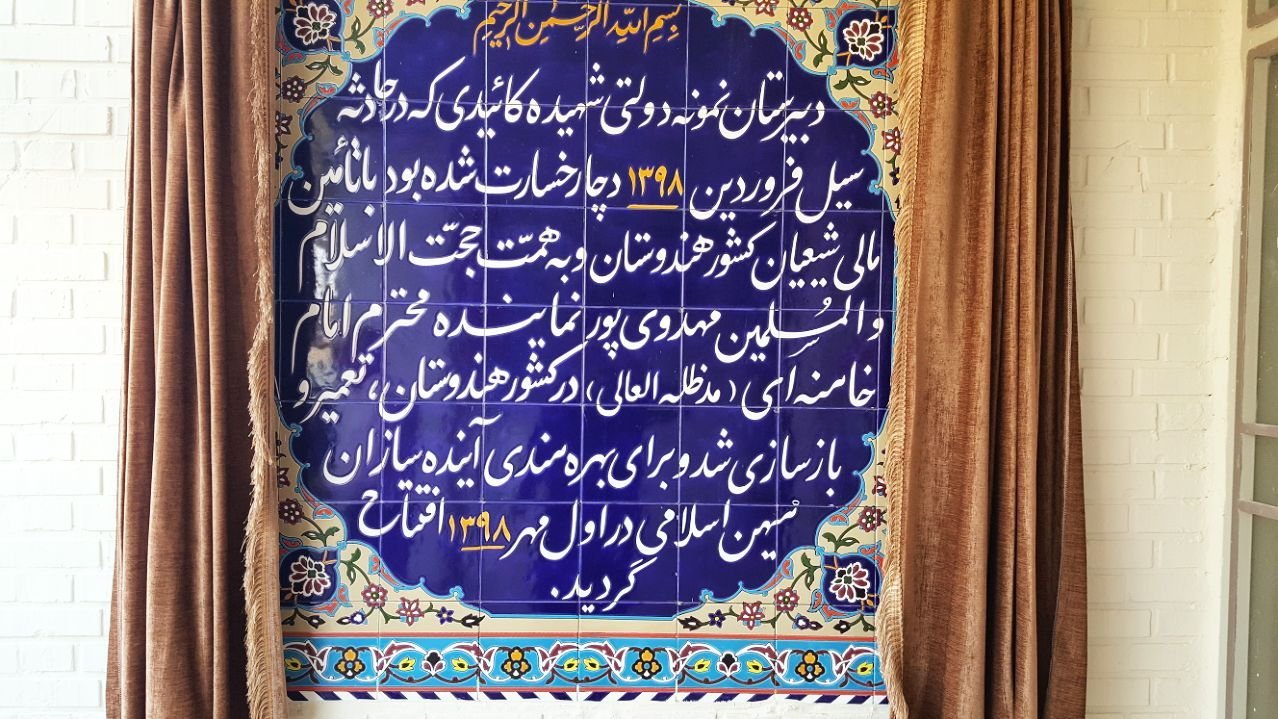 بِسْمِ اللهِ الرَّحْمٰنِ الرَّحِيمِ
دبیرستان نمونه دولتی شهیده کائیدی که در حادثه
سیل فروردین ۱۳۹۸ دچار خسارت شده بود با تأمین
مالی شیعیان کشور هندوستان و به همّت حجّت الاسلام
و المُسلِمین مهدوی پور نماینده محترم امام
خامنه ای (مدظله العالی) در کشور هندوستان، تعمیر و
بازسازی شد و برای بهره مندی آینده سازان
میهن اسلامی در اول مهر ۱۳۹۸ افتتاح
گردید.